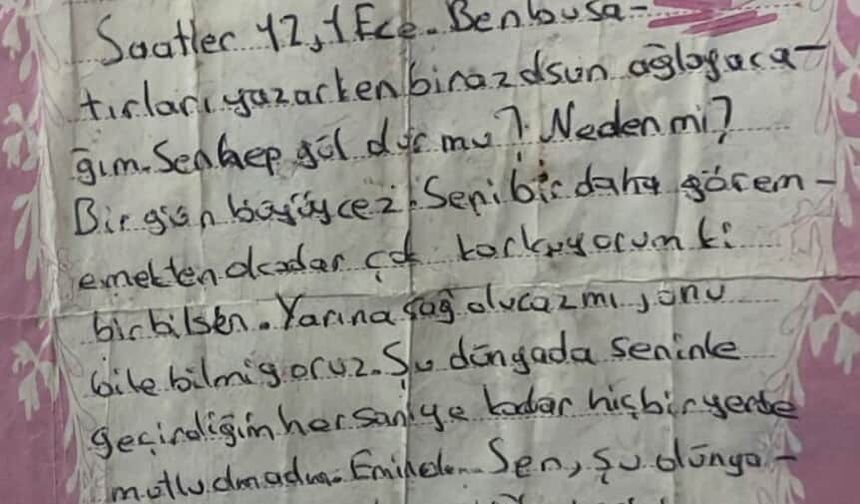 Saatler 12,1 Ece. Ben bu sa-
tırları yazarken biraz dsun ağlayaca-
ğım. Sen hep gül dur mu? Neden mi?
Bir gün büyüycez. Seni bir daha görem-
emekten okadar çok korkuyorum ki
bir bilsen. Yarına sağ olucazmı, onu
bile bilmiyoruz. Şu dünyada seninle
geçirdiğim her saniye kadar hiçbiryerde
mutlu olmadım. Eminol. Sen, şu dünya-